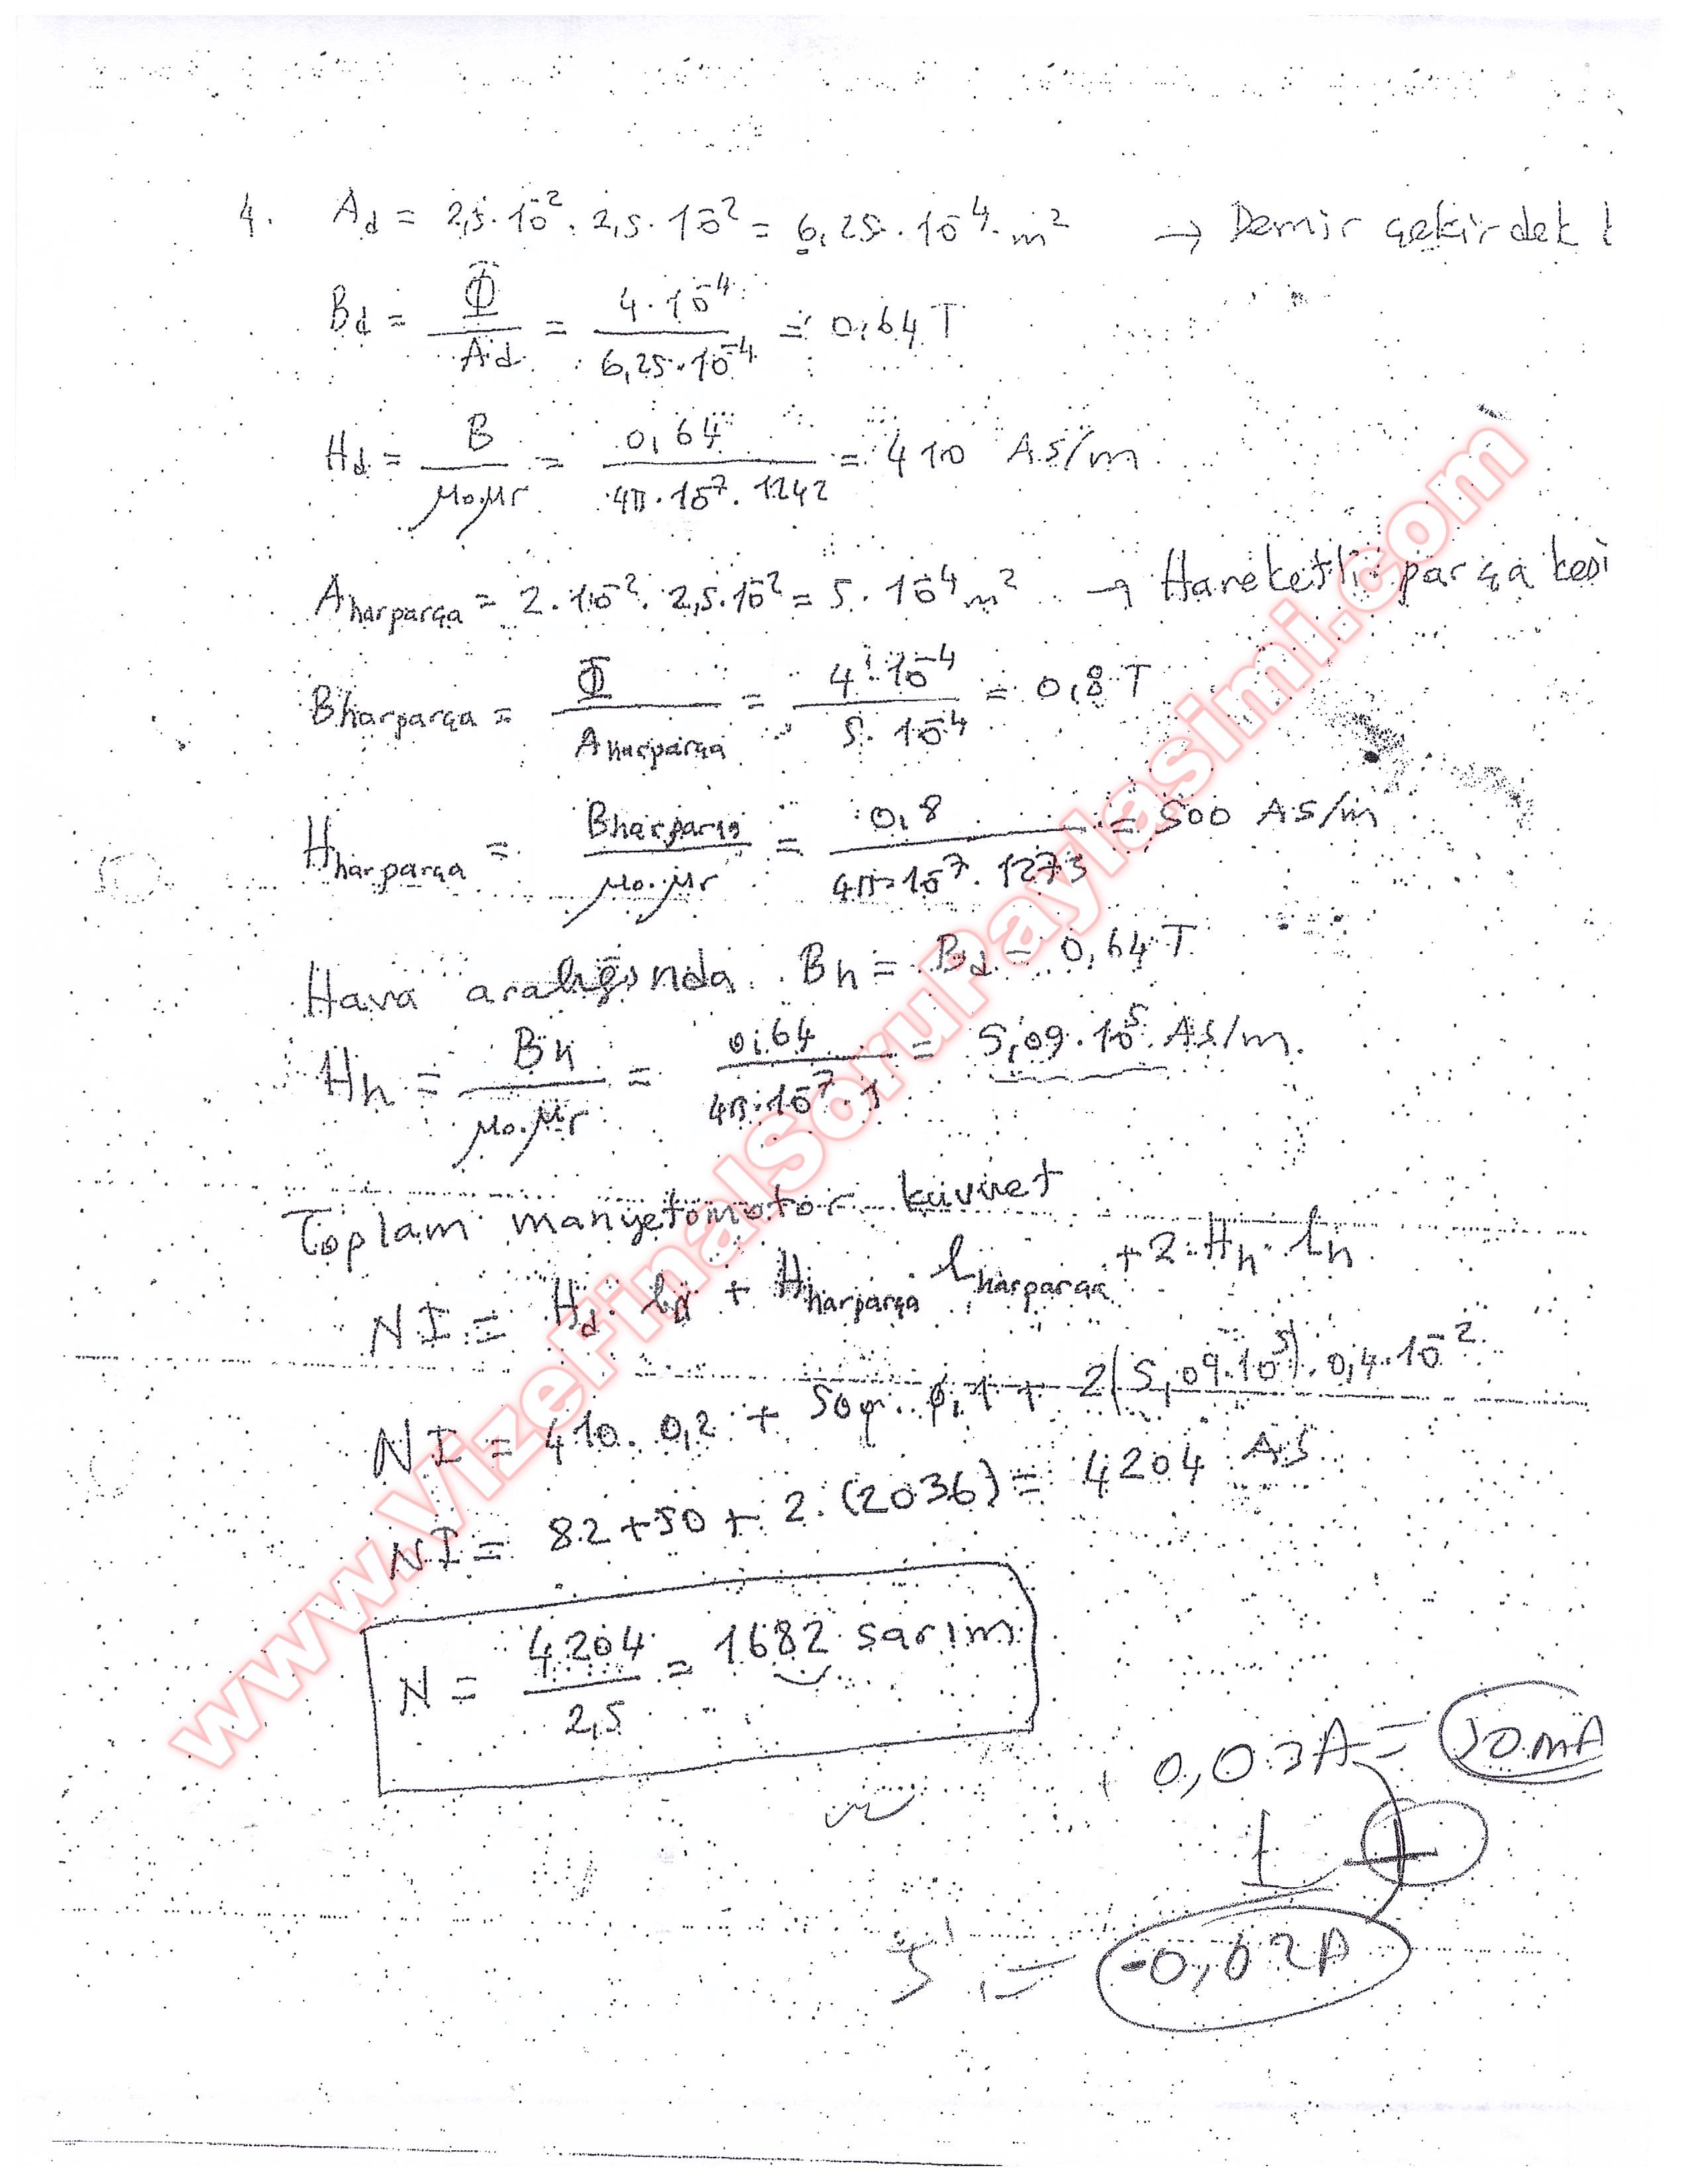 4. Ad = 2,5·10⁻² · 2,5·10⁻² = 6,25·10⁻⁴ m² → Demir çekirdek
Bd = Φ / Ad = 4·10⁻⁴ / 6,25·10⁻⁴ = 0,64 T
Hd = B / μ0·μr = 0,64 / 4π·10⁻⁷·1242 = 410 AS/m
Aharparça = 2·10⁻² · 2,5·10⁻² = 5·10⁻⁴ m² → Hareketli parça kesi
Bharparça = Φ / Aharparça = 4·10⁻⁴ / 5·10⁻⁴ = 0,8 T
Hharparça = Bharparça / μ0·μr = 0,8 / 4π·10⁻⁷·1273 = 500 AS/m
Hava aralığında Bh = Bd = 0,64 T
Hh = Bh / μ0·μr = 0,64 / 4π·10⁻⁷·1 = 5,09·10⁵ AS/m
Toplam manyetomotor kuvvet
NI = Hd·ld + Hharparça·lharparça + 2·Hh·lh
NI = 410·0,2 + 500·0,1 + 2(5,09·10⁵)·0,4·10⁻²
NI = 82 + 50 + 2·(2036) = 4204 AS
N = 4204 / 2,5 = 1682 sarım
0,03A = mA
-0,02A
www.VizeFinalSoruPaylasimi.com